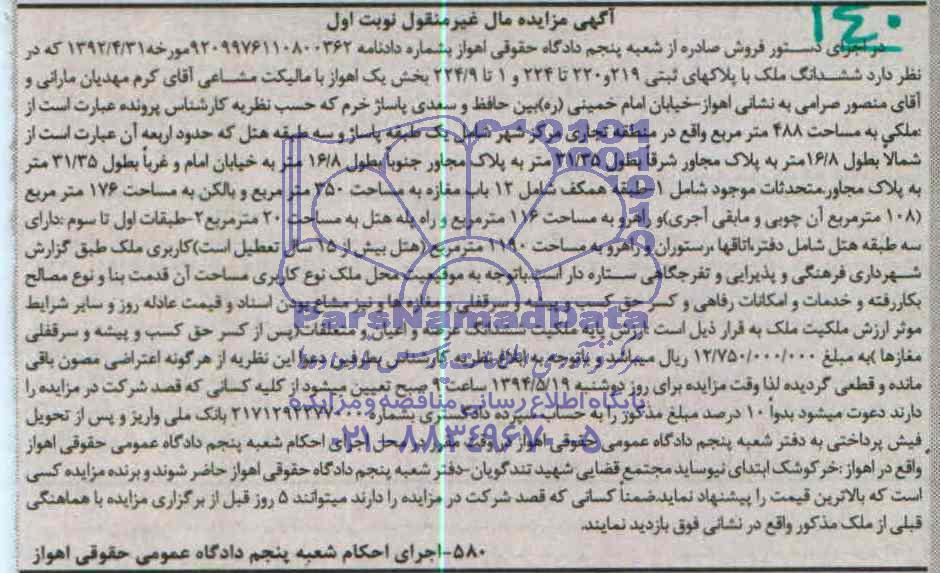 ۱۴۰
آگهی مزایده مال غیرمنقول نوبت اول
در اجرای دستور فروش صادره از شعبه پنجم دادگاه حقوقی اهواز بشماره دادنامه ۹۲۰۹۹۷۶۱۱۰۸۰۰۳۶۲مورخه۱۳۹۲/۴/۳۱ که در
نظر دارد ششدانگ ملک با پلاکهای ثبتی ۲۱۹و۲۲۰ تا ۲۲۴ و ۱ تا ۲۲۴/۹ بخش یک اهواز با مالیکت مشاعی آقای کرم مهدیان مارانی و
آقای منصور صرامی به نشانی اهواز-خیابان امام خمینی (ره)بین حافظ و سعدی پاساژ خرم که حسب نظریه کارشناس پرونده عبارت است از
:ملکی به مساحت ۴۸۸ متر مربع واقع در منطقه تجاری مرکز شهر شامل یک طبقه پاساژ و سه طبقه هتل که حدود اربعه آن عبارت است از
شمالاً بطول ۱۶/۸متر به پلاک مجاور شرقاً بطول ۳۱/۳۵ متر به پلاک مجاور جنوباً بطول ۱۶/۸ متر به خیابان امام و غرباً بطول ۳۱/۳۵ متر
به پلاک مجاور.متحدثات موجود شامل ۱-طبقه همکف شامل ۱۲ باب مغازه به مساحت ۳۵۰ متر مربع و بالکن به مساحت ۱۷۶ متر مربع
(۱۰۸ مترمربع آن چوبی و مابقی آجری)و راهرو به مساحت ۱۱۶ مترمربع و راه پله هتل به مساحت ۲۰ مترمربع۲-طبقات اول تا سوم :دارای
سه طبقه هتل شامل دفتر،اتاقها ،رستوران و راهرو به مساحت ۱۱۹۰ مترمربع (هتل بیش از ۱۵ سال تعطیل است)کاربری ملک طبق گزارش
شهرداری فرهنگی و پذیرایی و تفرجگاهی ستاره دار است.باتوجه به موقعیت محل ملک نوع کاربری مساحت آن قدمت بنا و نوع مصالح
بکاررفته و خدمات و امکانات رفاهی و کسر حق کسب و پیشه و سرقفلی و مغازه ها و نیز مشاع بودن اسناد و قیمت عادله روز و سایر شرایط
موثر ارزش ملکیت ملک به قرار ذیل است :ارزش پایه ملکیت ششدانگ عرصه و اعیان و متعلقات(پس از کسر حق کسب و پیشه و سرقفلی
مغازها )به مبلغ ۱۲/۷۵۰/۰۰۰/۰۰۰ ریال میباشد و باتوجه به ابلاغ نظریه کارشناس بطرفین دعوا این نظریه از هرگونه اعتراضی مصون باقی
مانده و قطعی گردیده لذا وقت مزایده برای روز دوشنبه ۱۳۹۴/۵/۱۹ ساعت ۹ صبح تعیین میشود از کلیه کسانی که قصد شرکت در مزایده را
دارند دعوت میشود بدواً ۱۰ درصد مبلغ مذکور را به حساب سپرده دادگستری بشماره بانک ملی واریز و پس از تحویل
فیش پرداختی به دفتر شعبه پنجم دادگاه عمومی حقوقی اهواز در وقت مقرر در محل اجرای احکام شعبه پنجم دادگاه عمومی حقوقی اهواز
واقع در اهواز :خرکوشک ابتدای نیوساید مجتمع قضایی شهید تندگویان-دفتر شعبه پنجم دادگاه حقوقی اهواز حاضر شوند و برنده مزایده کسی
است که بالاترین قیمت را پیشنهاد نماید.ضمناً کسانی که قصد شرکت در مزایده را دارند میتوانند ۵ روز قبل از برگزاری مزایده با هماهنگی
قبلی از ملک مذکور واقع در نشانی فوق بازدید نمایند.
۵۸۰-اجرای احکام شعبه پنجم دادگاه عمومی حقوقی اهواز
ParsNamadData
پایگاه اطلاع رسانی مناقصه و مزایده
۰۲۱-۸۸۳۴۹۶۷۰-۵